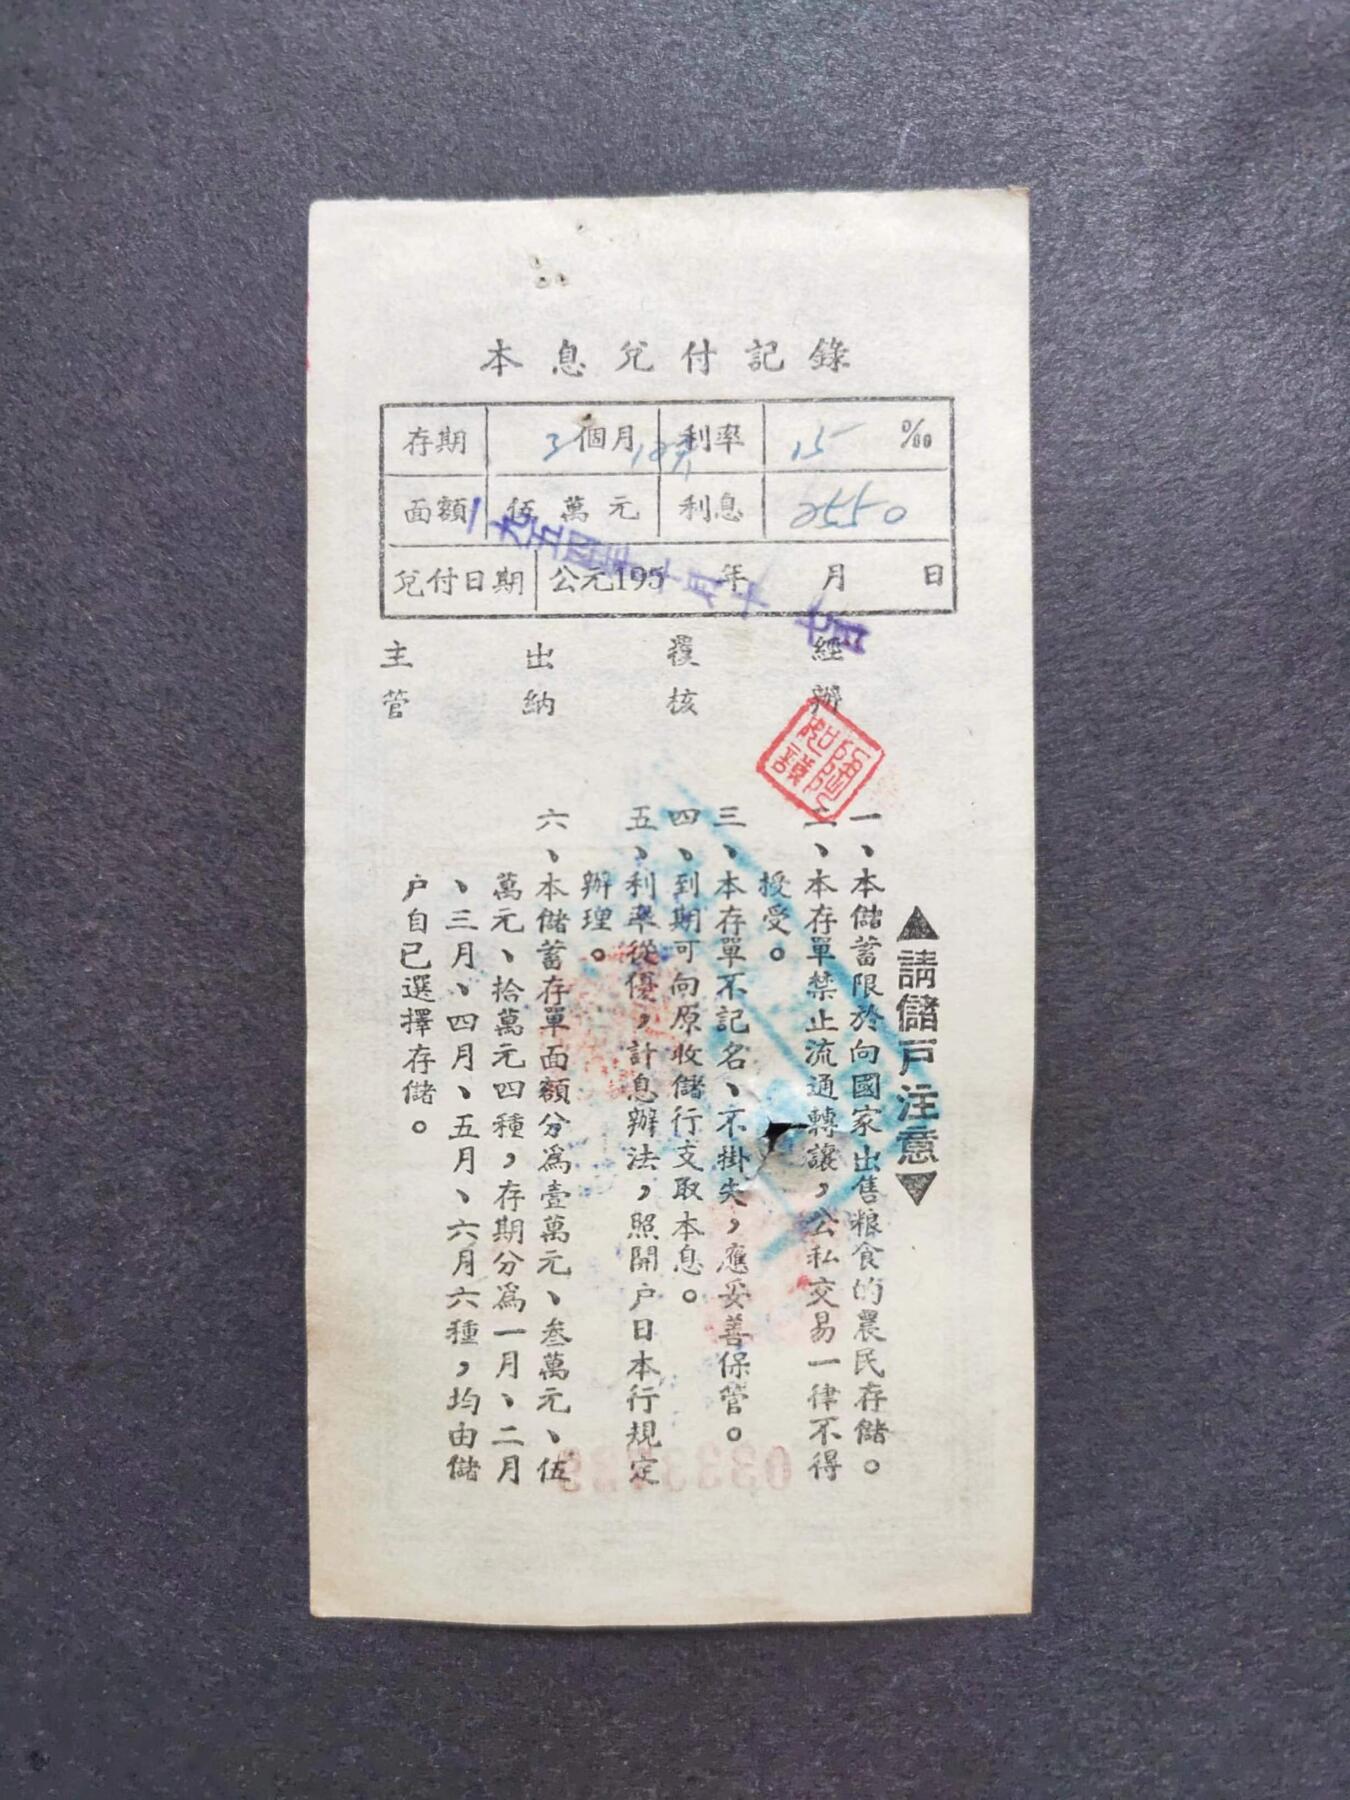 本息兌付記錄
存期 3個月 12天 利率 15 ‰
面額 伍萬元 利息 2550
兌付日期 公元195 年 月 日
主管 出納 覆核 經辦
▲請儲戸注意▼
一、本儲蓄限於向國家出售粮食的農民存儲。
二、本存單禁止流通轉讓，公私交易一律不得
授受。
三、本存單不記名、不掛失，應妥善保管。
四、到期可向原收儲行支取本息。
五、利率從優，計息辦法，照開户日本行規定
辦理。
六、本儲蓄存單面額分爲壹萬元、叁萬元、伍
萬元、拾萬元四種，存期分爲一月、二月
、三月、四月、五月、六月六種，均由儲
户自己選擇存儲。